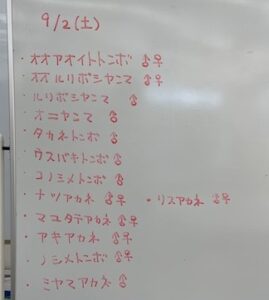 9/2(土)
・オオアオイトトンボ ♂♀
・オオルリボシヤンマ ♂♀
・ルリボシヤンマ ♂
・オニヤンマ ♂
・タカネトンボ ♂
・ウスバキトンボ ♂
・コノシメトンボ ♂
・ナツアカネ ♂♀ ・リスアカネ ♂♀
・マユタテアカネ ♂♀
・アキアカネ ♂♀
・ノシメトンボ ♂♀
・ミヤマアカネ ♂